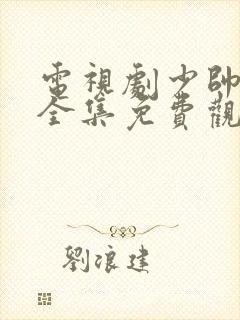 電視劇少帥
全集免費觀
劉浪建